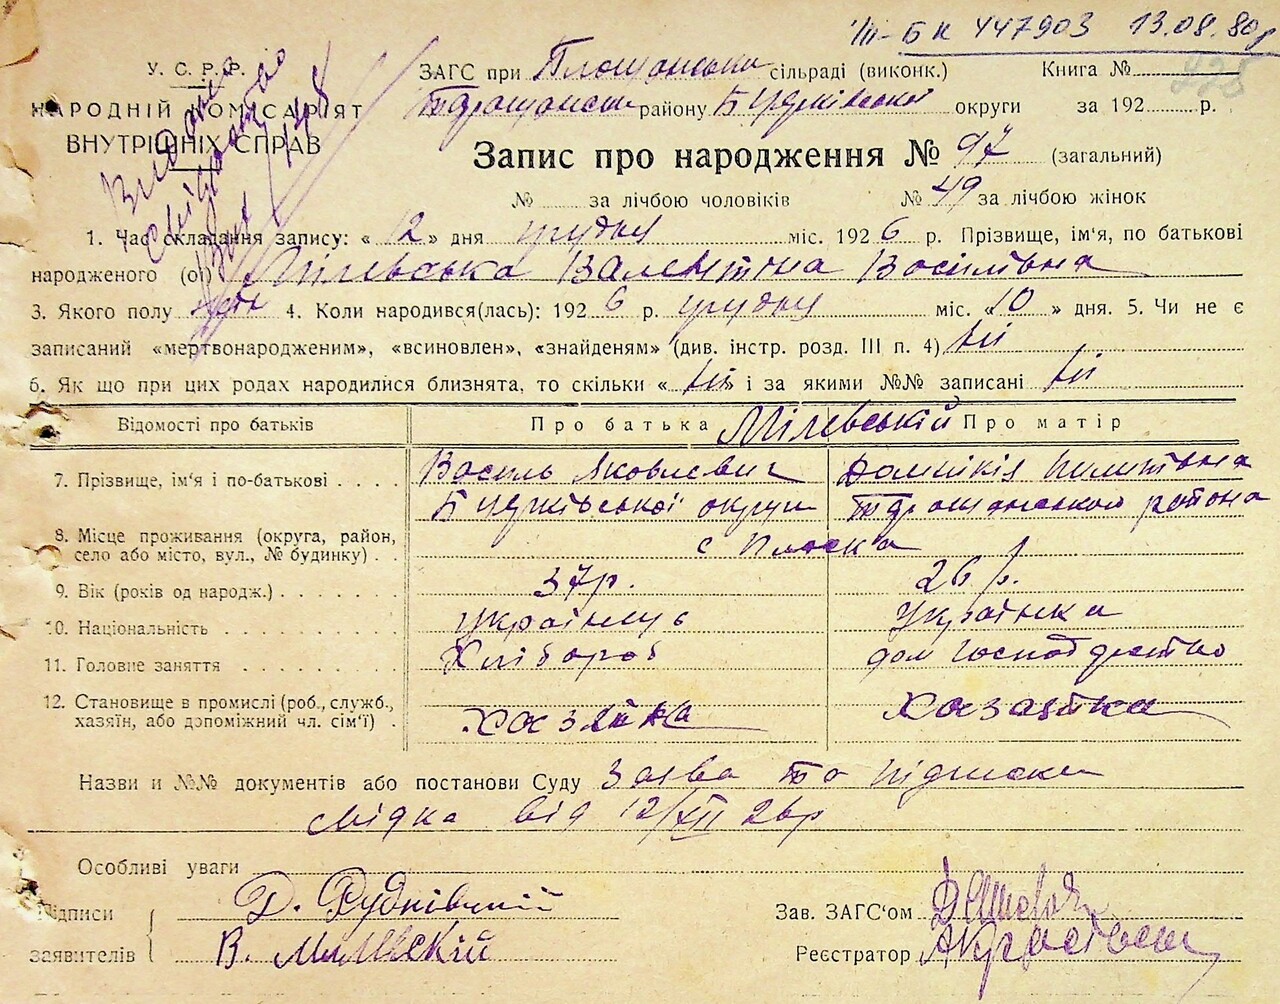 III-БК 447903 13.08.80р
У. С. Р. Р.
НАРОДНІЙ КОМІСАРІЯТ
ВНУТРІШНІХ СПРАВ
Видано
свідоцтво
ЗАГС при сільраді (виконк.) Книга №
району округи за 192 р.
Запис про народження № 97 (загальний)
№ за лічбою чоловіків № 49 за лічбою жінок
1. Час складання запису: « 12 » дня грудня міс. 192 6 р. Прізвище, ім'я, по батькові
народженого (ої) Мілевська Валентіна Васілівна
3. Якого полу жін 4. Коли народився(лась): 192 6 р. грудня міс. «10 » дня. 5. Чи не є
записаний «мертвонародженим», «всиновлен», «знайденям» (див. інстр. розд. III п. 4) ні
6. Як що при цих родах народилися близнята, то скільки « ні» і за якими №№ записані ні
Відомості про батьків Про батька Мілевській Про матір
7. Прізвище, ім'я і по-батькові Василь Яковлевич
8. Місце проживання (округа, район, округи района
село або місто, вул., № будинку) с Плоска
9. Вік (років од народж.) 37р. 26 р.
10. Національність українць Українка
11. Головне заняття Хлібороб дом господарство
12. Становище в промислі (роб., служб.,
хазяїн, або допоміжний чл. сім'ї) хазяйка хазяйка
Назви и №№ документів або постанови Суду Заява та підписка
свідка від 12/XII 26р
Особливі уваги
Підписи Д. Рудківській Зав. ЗАГС'ом
заявителів В. Милевскій Реєстратор